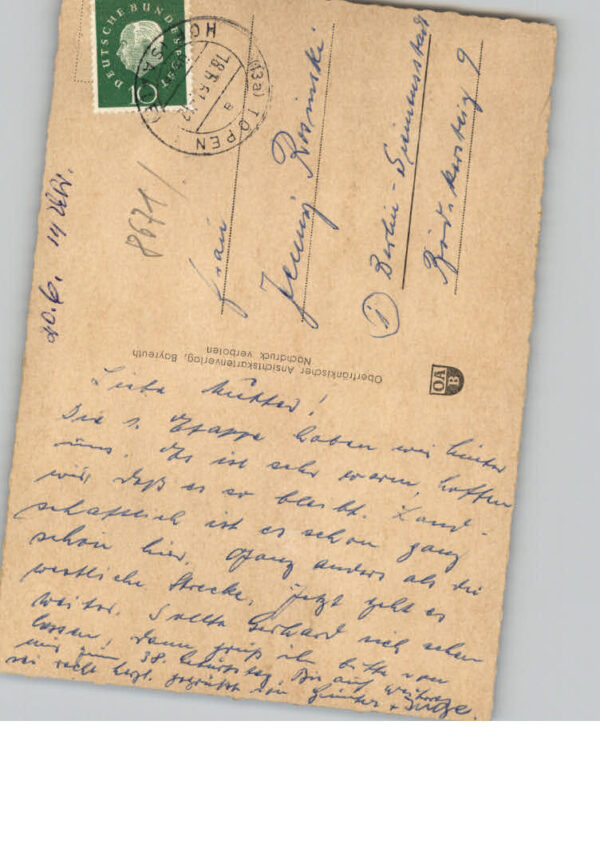 DEUTSCHE BUNDESPOST
10
(13a) TÖPEN
HOF SAALE
a
8671/.
20.6. 14 Uhr.
Frau
Jenny
(1) Berlin-Siemensstadt
9
Oberfränkischer Ansichtskartenverlag, Bayreuth
Nachdruck verboten
OA
B
Liebe Mutter!
Die 1. Etappe haben wir hinter
uns. Es ist sehr warm, hoffen
wir, daß es so bleibt. Land-
schaftlich ist es schon ganz
schön hier. Ganz anders als die
westliche Strecke. Jetzt geht es
weiter. Sollte Gerhard sich sehen
lassen, dann grüß ihn bitte von
uns zum 38. Geburtstag. Bis auf weiteres
sei recht herzl. gegrüßt von Günter +